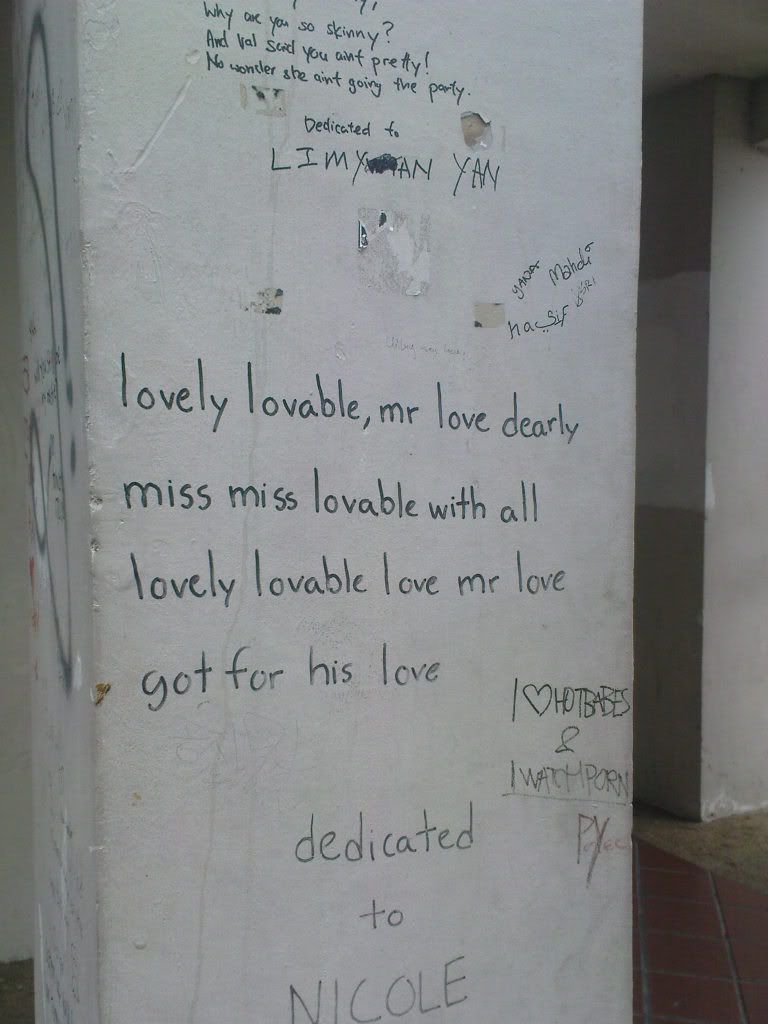 Why are you so skinny?
And Val said you aint pretty!
No wonder she aint going the party.
Dedicated to
LIMY AN YAN
YANA Mahdi
nasif
lovely lovable, mr love dearly
miss miss lovable with all
lovely lovable love mr love
got for his love
I ♡ HOTBABES
&
I WATCH PORN
PY
dedicated
to
NICOLE